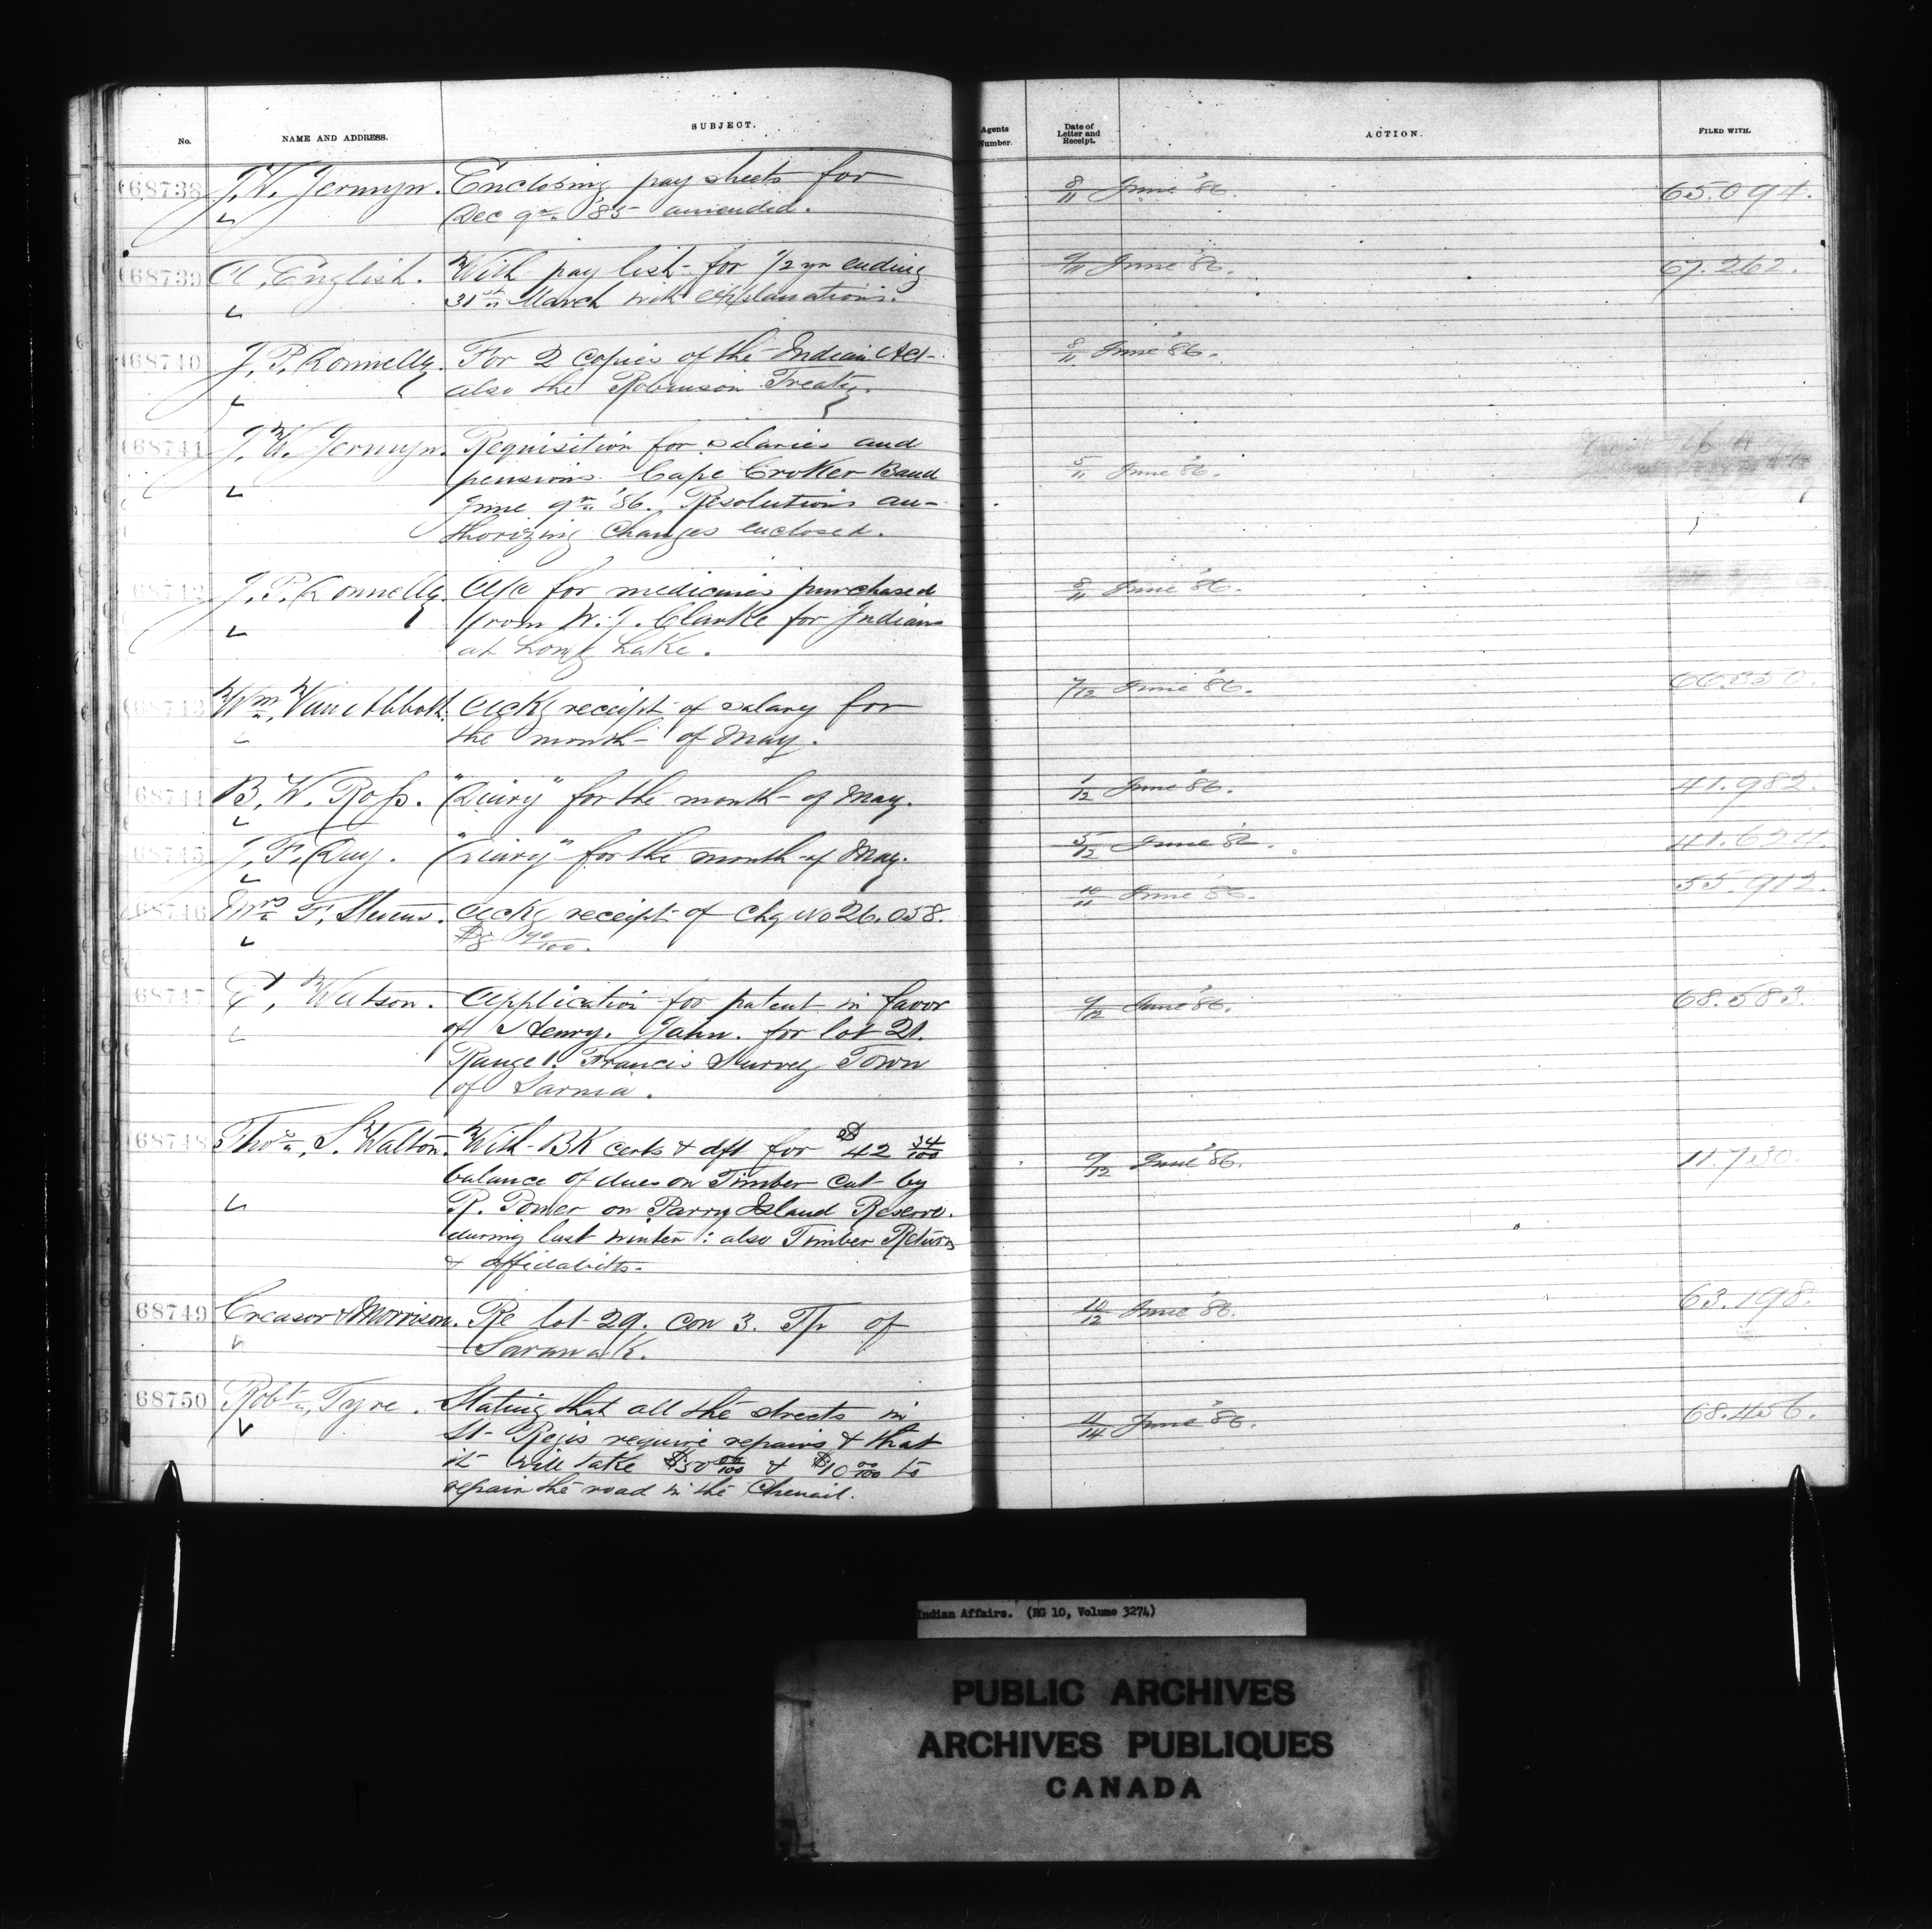 No. NAME AND ADDRESS. SUBJECT. Agents Number. Date of Letter and Receipt. ACTION. FILED WITH.
68738 J. W. Jermyn. Enclosing pay sheets for 8/11 June '86. 65.094.
Dec qr. '85 amended.
68739 A. English. With pay list for 1/2 yr ending 9/11 June '86. 67.262.
31st March with explanations.
68740 J. P. Donnelly. For 2 copies of the Indian Act 8/11 June '86.
also the Robinson Treaty.
68741 J. W. Jermyn. Requisition for salaries and
pensions Cape Croker Band 5/11 June '86.
June qr. '86. Resolutions au-
thorizing changes enclosed.
68742 J. P. Donnelly. A/c for medicines purchased 8/11 June '86.
from W. J. Clarke for Indians
at Long Lake.
68743 Wm. Van Abbott. Ackg receipt of salary for 7/12 June '86.
the month of May.
68744 B. W. Ross. "Diary" for the month of May. 1/12 June '86. 41.982.
68745 J. F. Day. "Diary" for the month of May. 5/12 June '86. 41.624.
68746 Mrs F. Stevens. Ackg receipt of chq No 26.058. 10/11 June '86. 55.912.
$8 90/100.
68747 E. Watson. Application for patent in favor 9/12 June '86. 68.583.
of Henry. Jahn. for lot 21.
Range 1. Francis Survey Town
of Sarnia.
68748 Thos. S. Walton. With BK certs & dft for $42 34/100
balance of dues on Timber cut by 9/12 June '86. 11.730.
R. Power on Parry Island Reserve.
during last winter: also Timber Return
& affidavits.
68749 Creasor & Morrison. Re lot 29. con 3. Tp of 10/12 June '86. 63.198.
Sarawak.
68750 Robt. Tyre. Stating that all the streets in 11/14 June '86. 68.456.
St Regis require repairs & that
it will take $50 00/100 & $10 00/100 to
repair the road in the Chenail.
Indian Affairs. (RG 10, Volume 3274)
PUBLIC ARCHIVES
ARCHIVES PUBLIQUES
CANADA